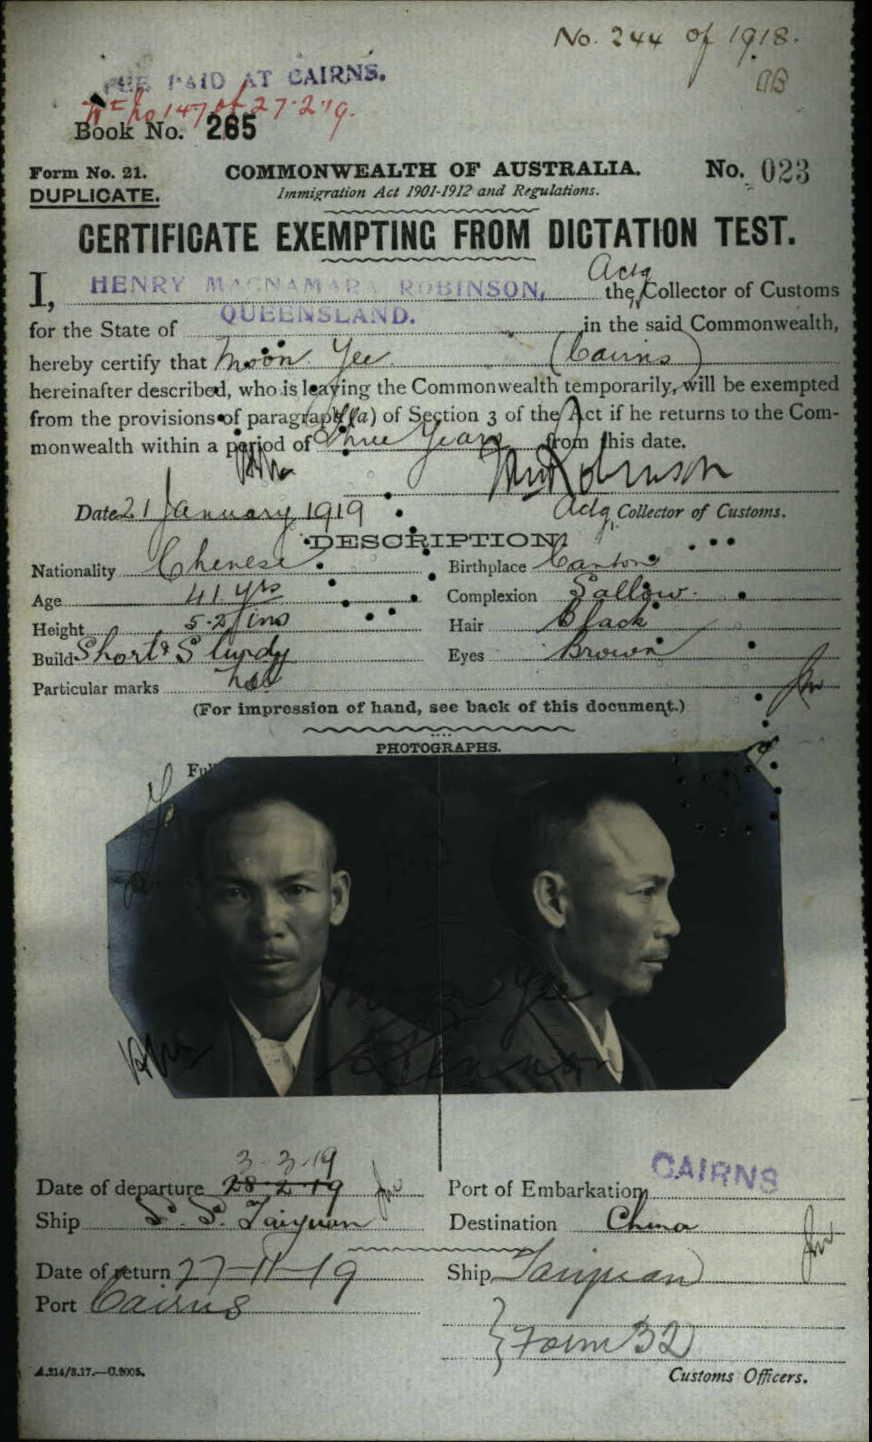 No. 244 of 1918.
FEE PAID AT CAIRNS.
No 147 of 27.2.19.
Book No. 265
Form No. 21. COMMONWEALTH OF AUSTRALIA. No. 023
DUPLICATE. Immigration Act 1901-1912 and Regulations.
CERTIFICATE EXEMPTING FROM DICTATION TEST.
Actg
I, HENRY MACNAMARA ROBINSON, the Collector of Customs
for the State of QUEENSLAND. in the said Commonwealth,
hereby certify that Moon Yee (Cairns)
hereinafter described, who is leaving the Commonwealth temporarily, will be exempted
from the provisions of paragraph (a) of Section 3 of the Act if he returns to the Com-
monwealth within a period of Three Years from this date.
Robinson
Date 21 January 1919 Actg Collector of Customs.
DESCRIPTION.
Nationality Chinese Birthplace Canton
Age 41 yrs Complexion Sallow.
Height Hair Black
Build Short & Sturdy Eyes Brown
Particular marks
(For impression of hand, see back of this document.)
PHOTOGRAPHS.
Moon Yee
3.3.19
Date of departure 28 2 19 Port of Embarkation CAIRNS
Ship S. S. Taiyuan Destination China
Date of return 27-11-19 Ship Taiyuan
Port Cairns
Form 32
A.214/3.17.—C.2005. Customs Officers.